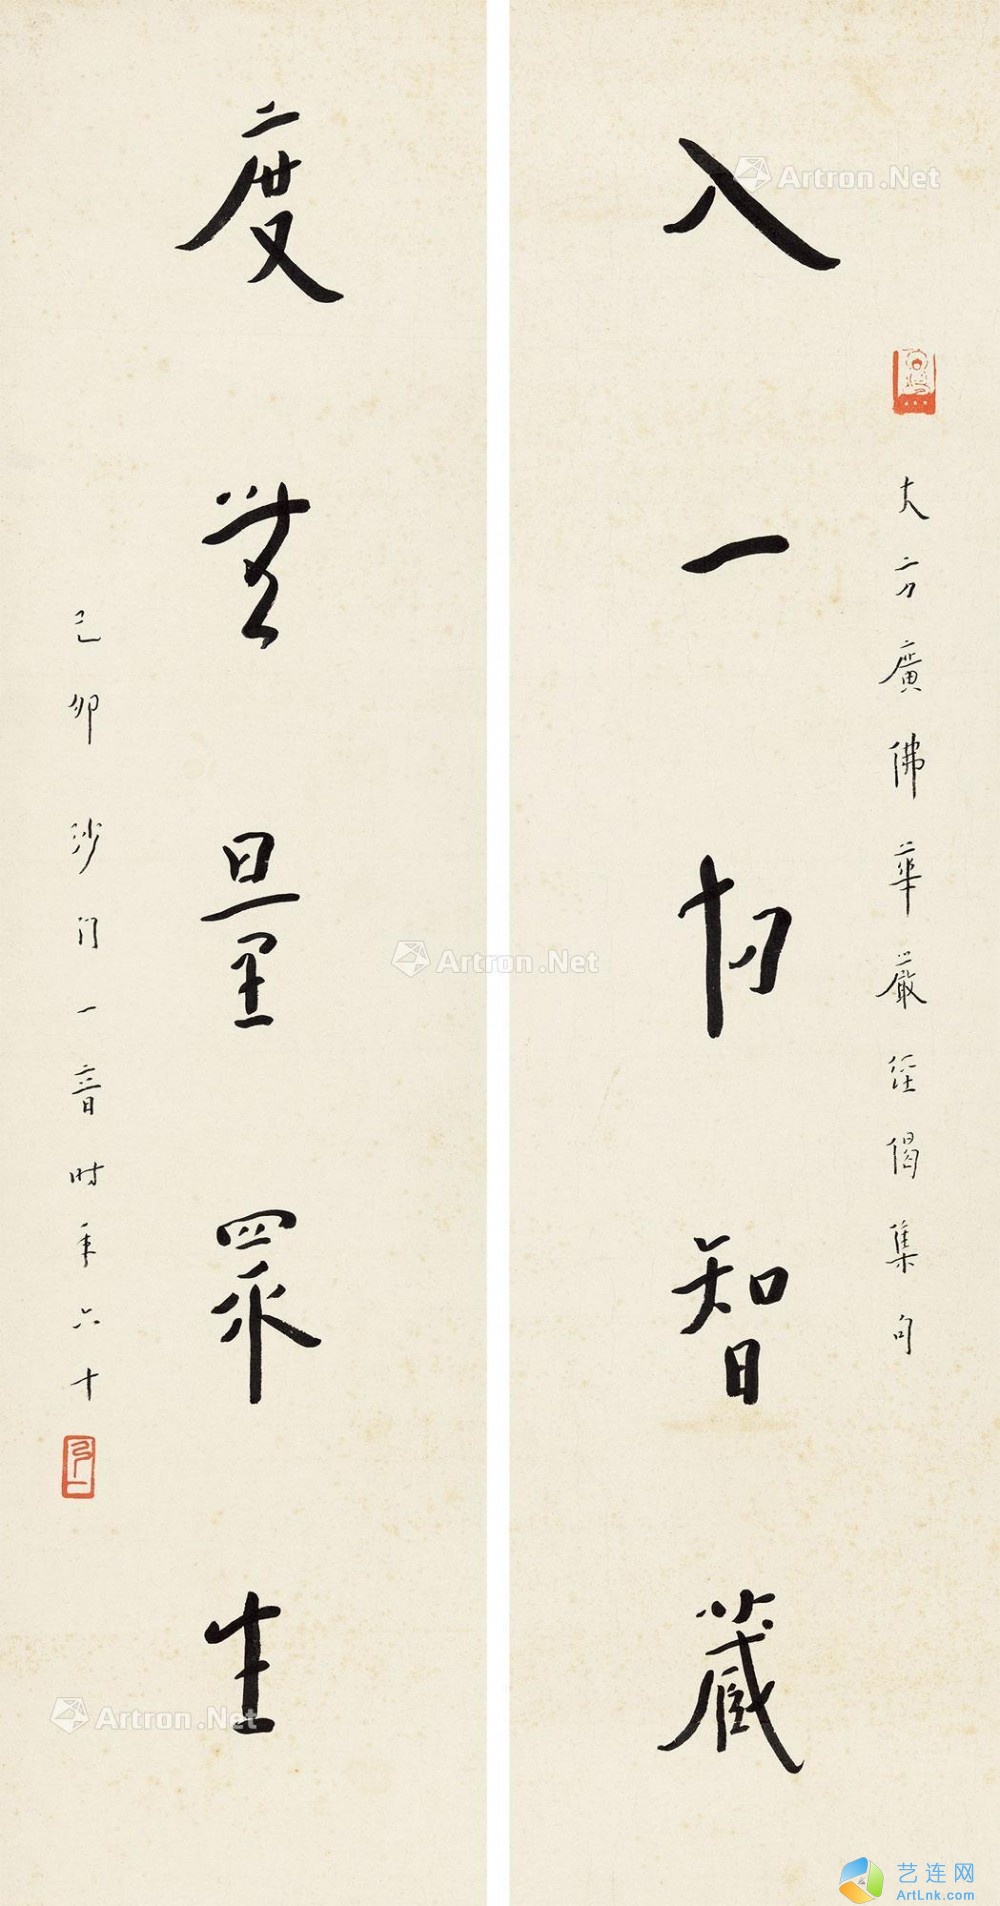 入一切智藏
大方廣佛華嚴經偈集句
度無量眾生
己卯沙門一音時年六十
Artron.Net
Artron.Net
Artron.Net
艺连网
ArtLnk.com